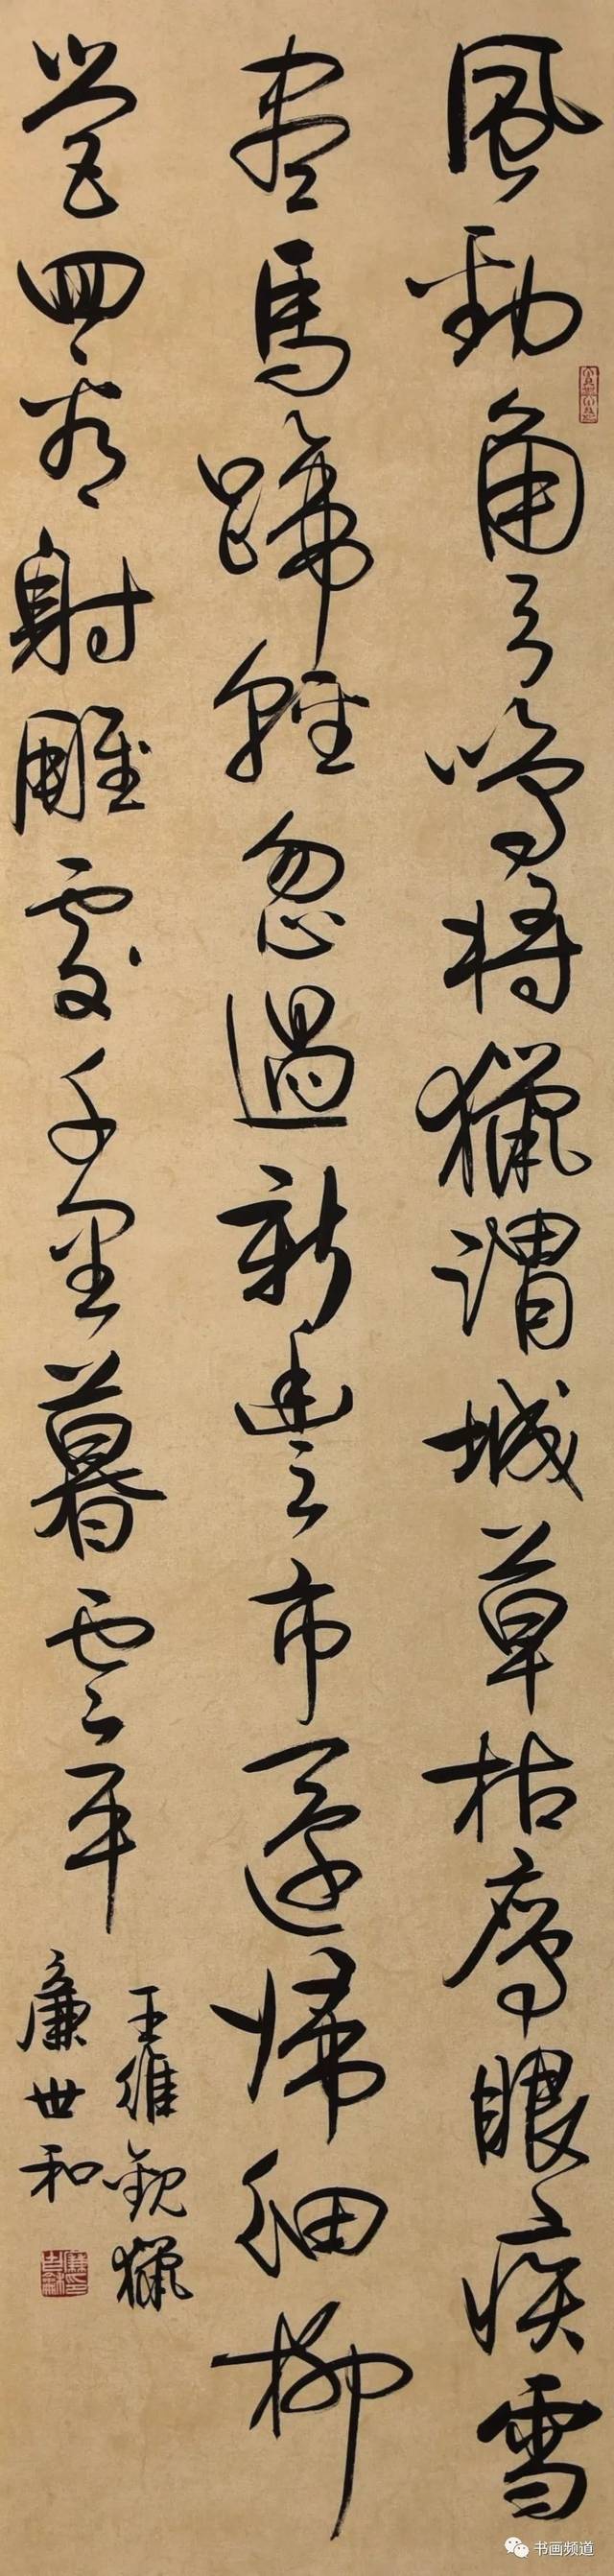 風勁角弓鳴將獵渭城草枯鷹眼疾雪
盡馬蹄輕忽過新豐市還歸細柳
營回看射雕處千里暮雲平
王維觀獵
廉世和
书画频道